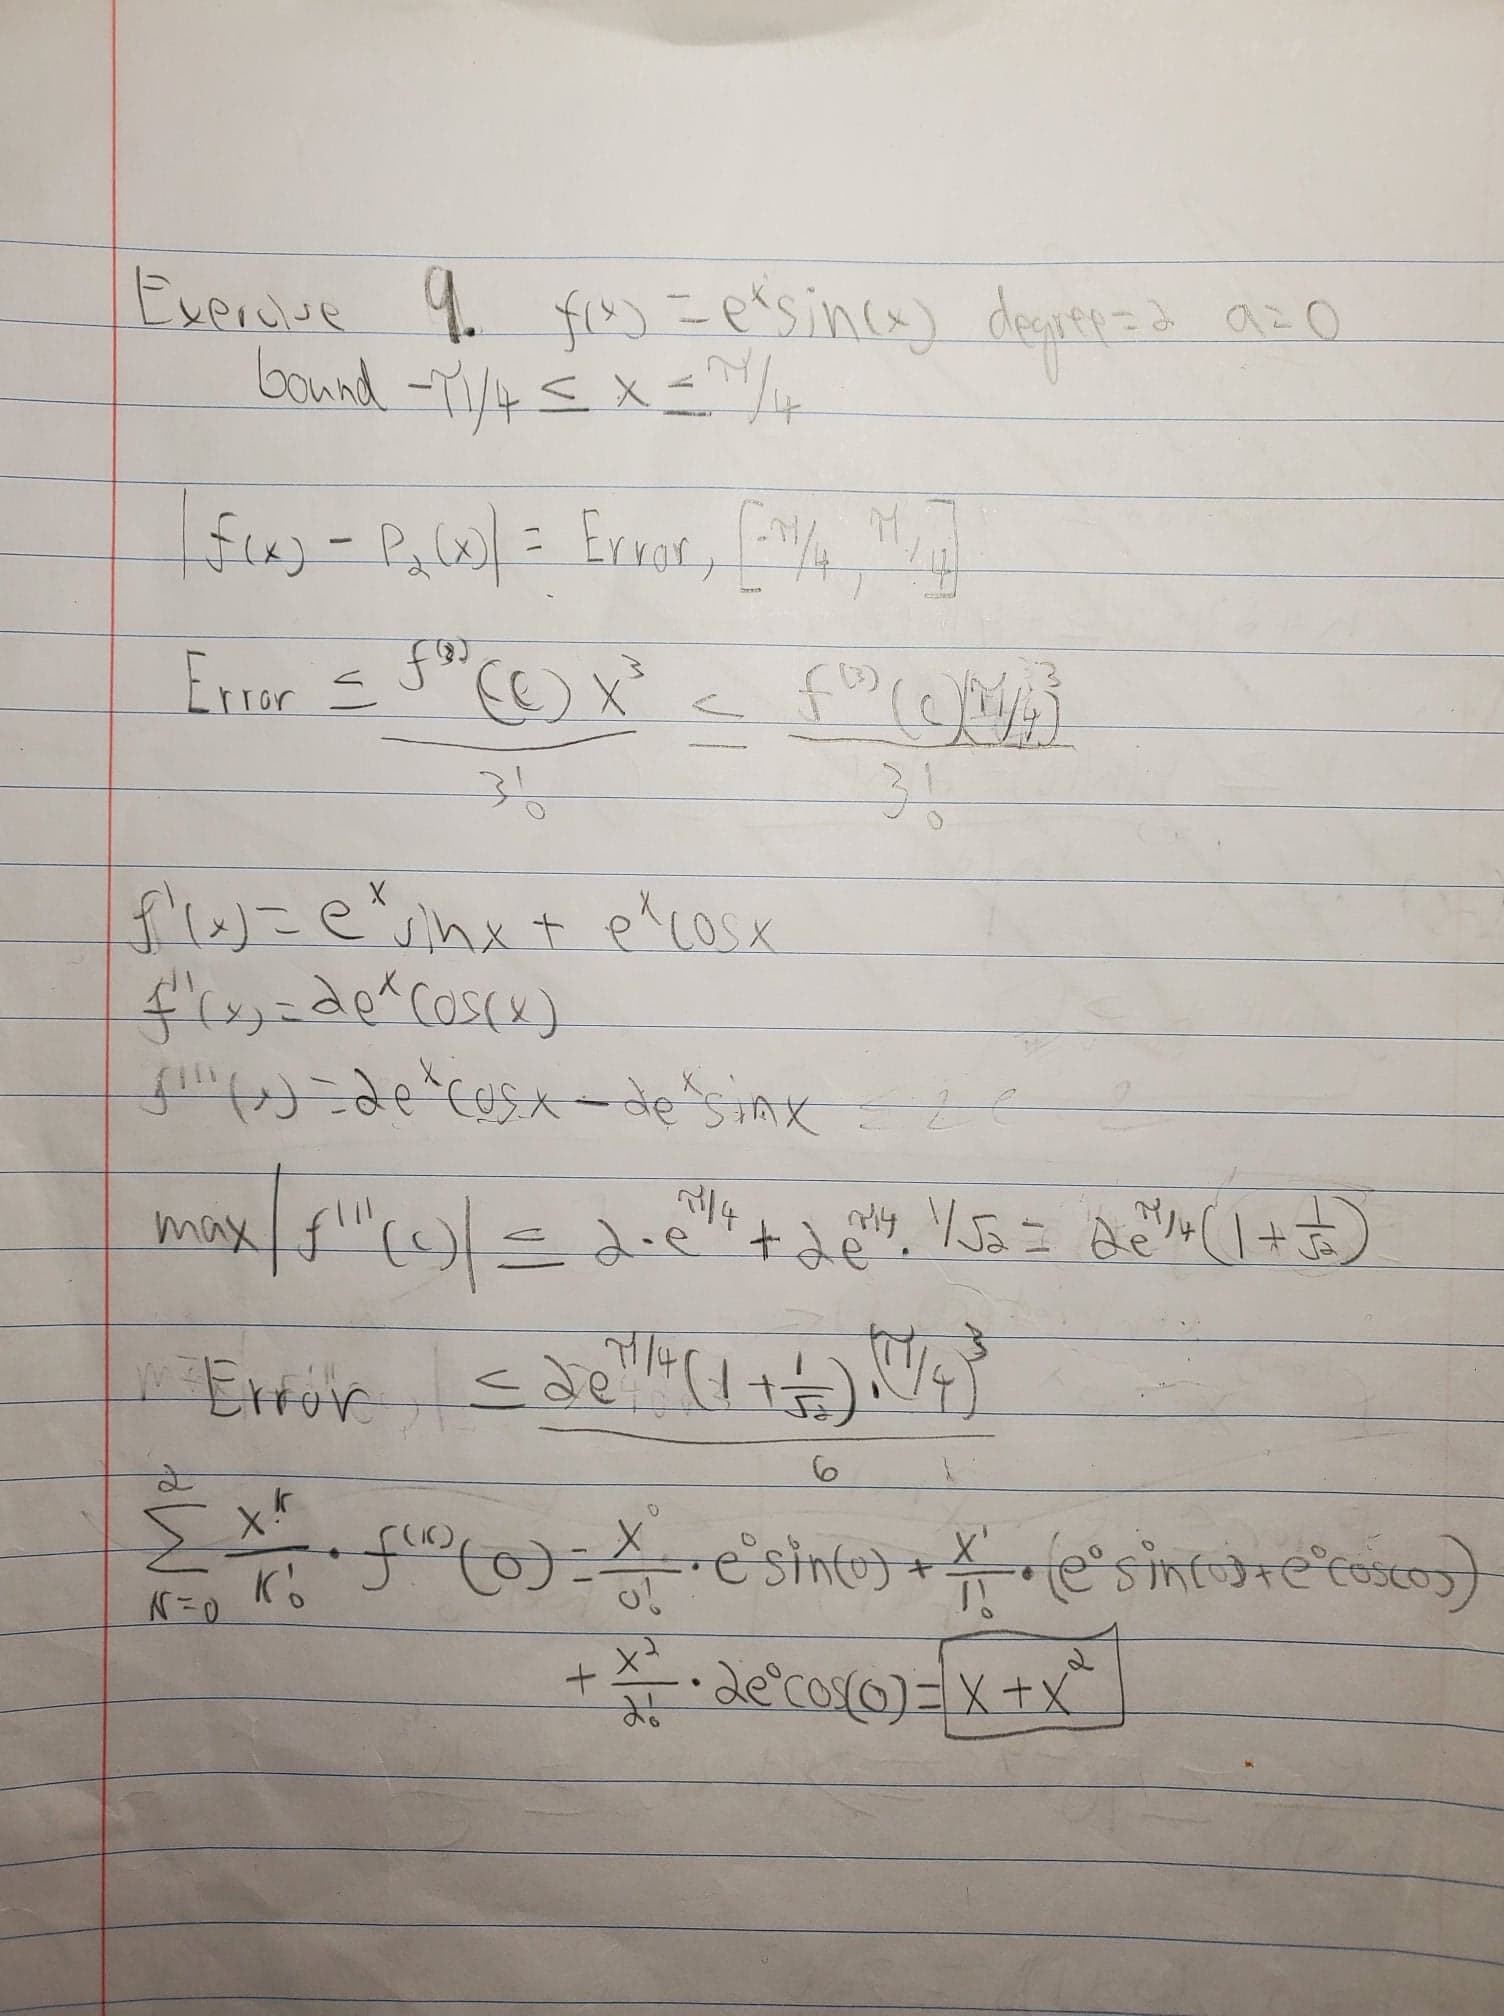 Exercise 9. f(x) = e^x sin(x) degree=2 a=0
bound -π/4 ≤ x ≤ π/4
|f(x) - P₂(x)| = Error, [-π/4, π/4]
Error ≤ f⁽³⁾(c) x³ / 3! ≤ f⁽³⁾(c)(π/4)³ / 3!
f'(x) = e^x sinx + e^x cosx
f''(x) = 2e^x cos(x)
f'''(x) = 2e^x cosx - 2e^x sinx
max |f'''(c)| ≤ 2·e^(π/4) + 2e^(π/4) · 1/√2 = 2e^(π/4)(1 + 1/√2)
Error ≤ 2e^(π/4)(1 + 1/√2)·(π/4)³ / 6
∑_(K=0)^2 x^K/K! · f^(K)(0) = x⁰/0! · e⁰sin(0) + x¹/1! · (e⁰sin(0)+e⁰cos(0))
+ x²/2! · 2e⁰cos(0) = x + x²